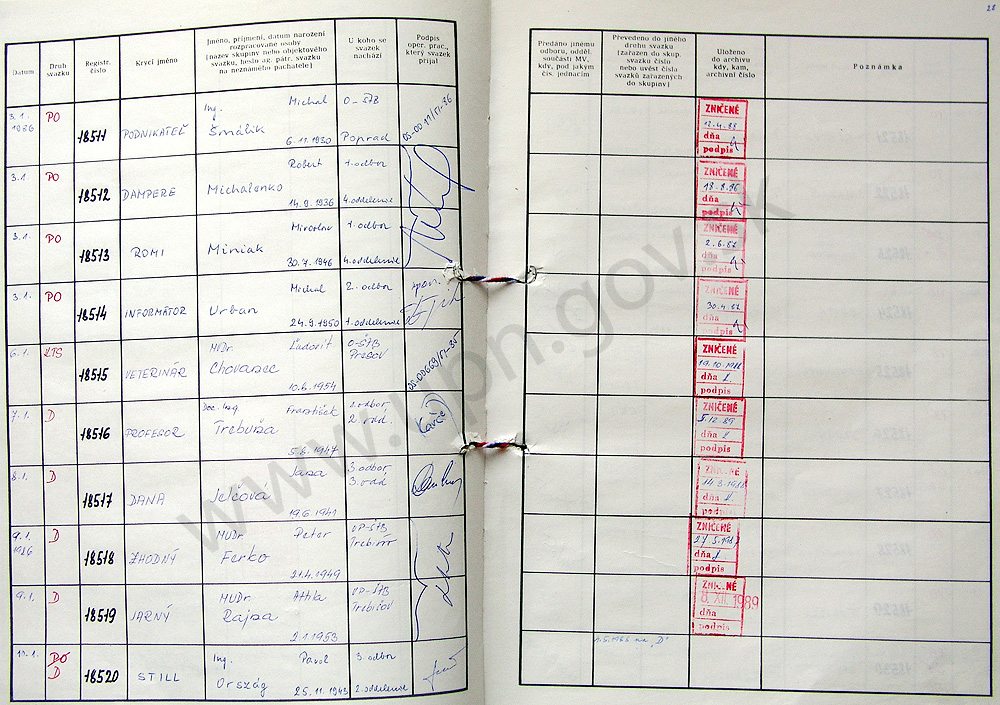 28
Datum
Druh
svazku
Registr.
číslo
Krycí jméno
Jméno, příjmení, datum narození
rozpracované osoby
[název skupiny nebo objektového
svazku, heslo ag. pátr. svazku
na neznámého pachatele]
U koho se
svazek
nachází
Podpis
oper. prac.,
který svazek
přijal
Předáno jinému
odboru, odděl.
součásti MV,
kdy, pod jakým
čís. jednacím
Převedeno do jiného
druhu svazku
[zařazen do skup.
svazku číslo
nebo uvést čísla
svazků zařazených
do skupiny]
Uloženo
do archivu
kdy, kam,
archivní číslo
Poznámka
3.1.
1986
PO
18511
PODNIKATEĽ
Ing. Michal
Šmálik
6.11.1930
O-ŠTB
Poprad
ZNIČENÉ
12.4.88
dňa
podpis
3.1
PO
18512
DAMPERE
Robert
Michalenko
14.9.1936
1.odbor
4.oddelenie
ZNIČENÉ
dňa
podpis
3.1.
PO
18513
ROMI
Miroslav
Miniak
30.7.1946
1.odbor
4.oddelenie
ZNIČENÉ
dňa
podpis
3.1.
PO
18514
INFORMÁTOR
Michal
Urban
24.9.1950
2.odbor
1.oddelenie
ZNIČENÉ
dňa
podpis
6.1.
18515
VETERINÁR
MVDr. Ľudovít
Chovanec
10.6.1954
O-ŠTB
Prešov
ZNIČENÉ
19.10.1988
dňa
podpis
7.1.
D
18516
PROFESOR
Doc. Ing. František
Trebuňa
5.6.1947
2.odbor
2.odd.
ZNIČENÉ
5.12.89
dňa
podpis
8.1.
D
18517
DANA
Jana
Jelčova
19.6.1941
3.odbor
3.odd
ZNIČENÉ
14.3.1988
dňa
podpis
9.1.
1986
D
18518
ZHODNÝ
MUDr. Peter
Ferko
21.4.1949
OP-ŠTB
Trebišov
ZNIČENÉ
dňa
podpis
9.1.
D
18519
JARNÝ
MUDr. Attila
Rajza
2.1.1953
OP-ŠTB
Trebišov
ZNIČENÉ
8. XII. 1989
dňa
podpis
10.1.
PO
D
18520
STILL
Ing. Pavol
Ország
25.11.1943
3.odbor
2.oddelenie
na "D"
www.upn.gov.sk